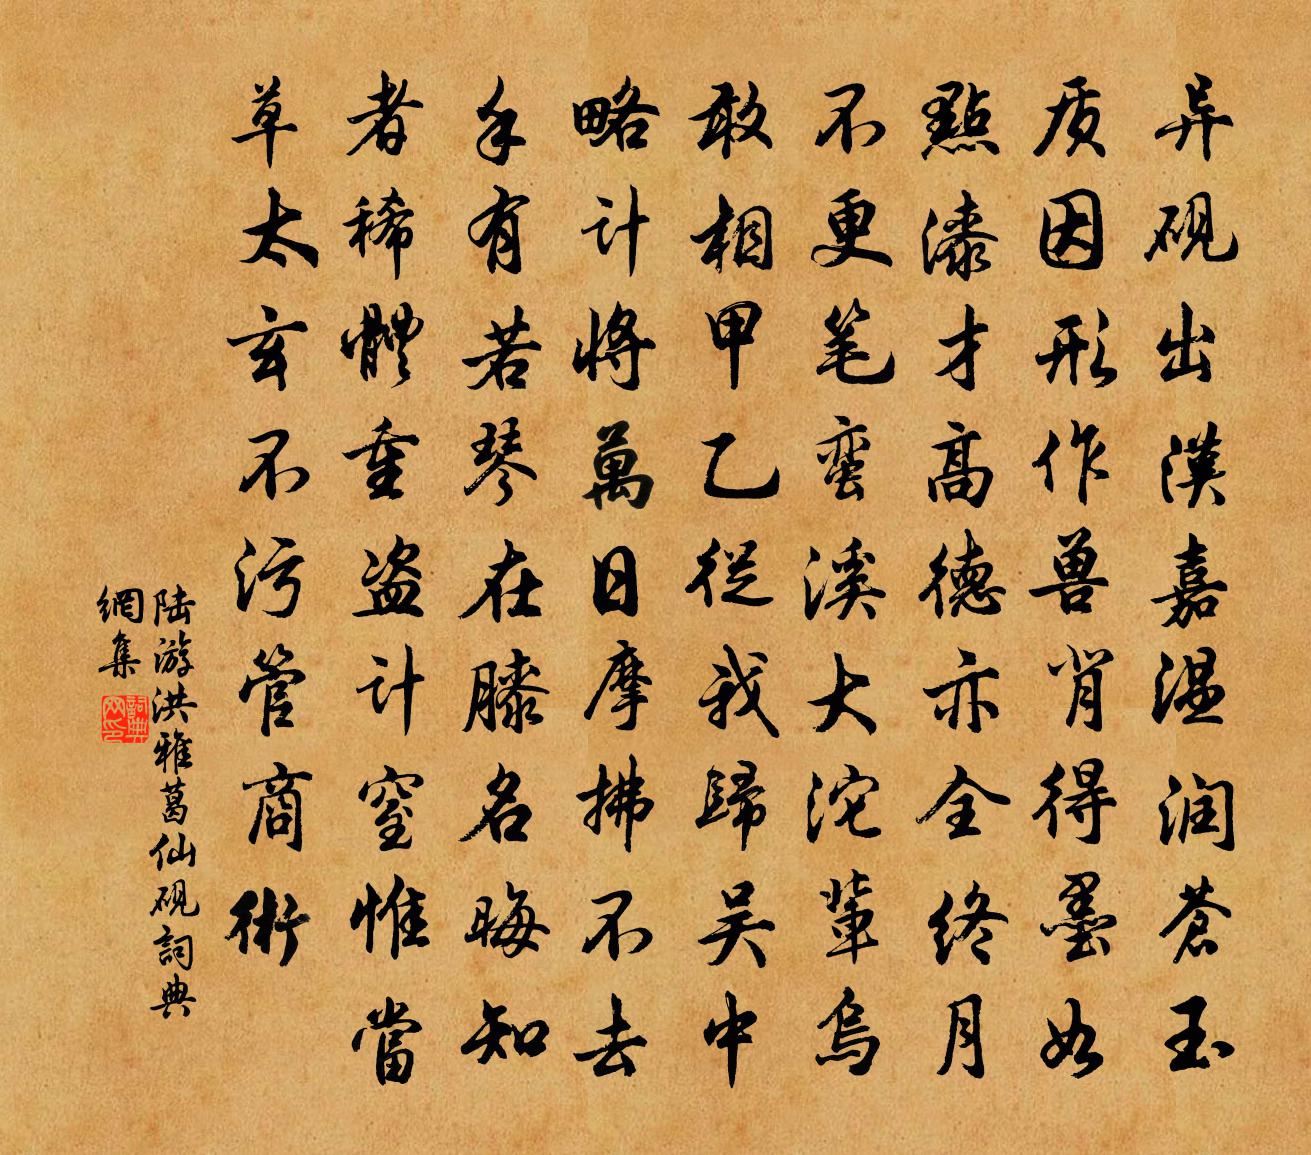 异砚出漢嘉温润苍玉
质因形作兽肖得墨如
點漆才高德亦全终月
不更笔蛮溪大沱辈烏
敢相甲乙從我歸吴中
略计将萬日摩拂不去
手有若琴在膝名晦知
者稀體重盗计窒惟當
草太玄不污管商術
陆游洪雅葛仙砚詞典
網集
詞典网